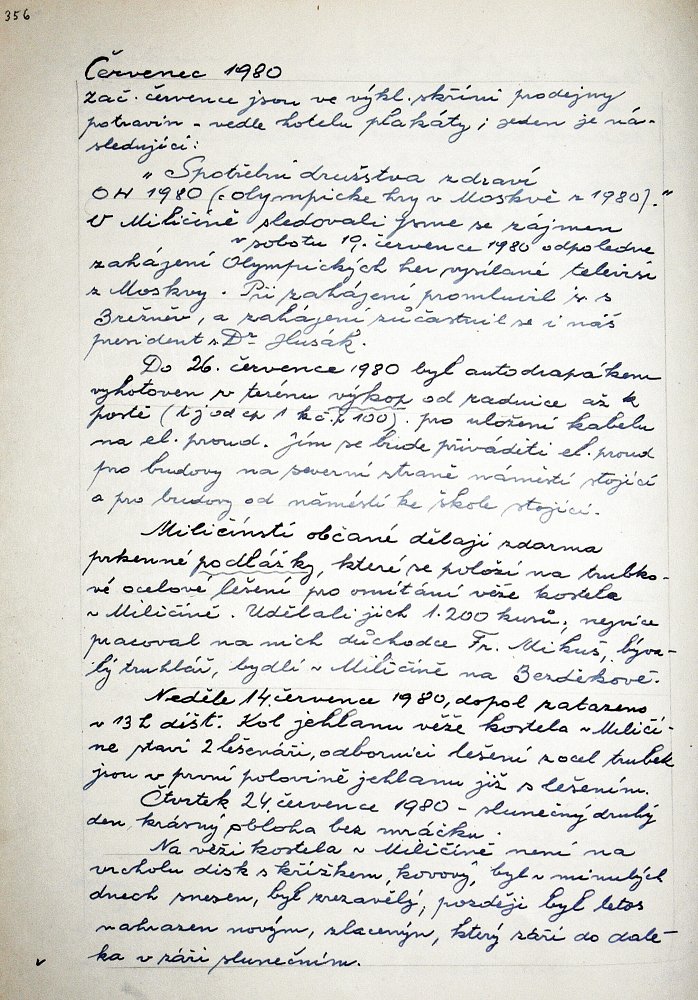 356
Červenec 1980
Zač. července jsou ve výkl. skříni prodejny
potravin - vedle hotelu plakáty; jeden je ná-
sledující:
"Spotřební družstva zdraví
OH 1980 (: Olympické hry v Moskvě r 1980)."
V Miličíně sledovali jsme se zájmem
v sobotu 19. července 1980 odpoledne
zahájení Olympických her vysílané televisí
z Moskvy. Při zahájení promluvil s. s
Brežněv, a zahájení zúčastnil se i náš
president s. Dr Husák.
Do 26. července 1980 byl autodrapákem
vyhotoven v terénu výkop od radnice až k
poště (tj od čp 1 k č. p 100). pro uložení kabelu
na el. proud. Jím se bude přiváděti el. proud
pro budovy na severní straně náměstí stojící
a pro budovy od náměstí ke škole stojící.
Miličínstí občané dělají zdarma
prkenné podlážky, které se položí na trubko-
vé ocelové lešení pro omítání věže kostela
v Miličíně. Udělali jich 1.200 kusů; nejvíce
pracoval na nich důchodce Fr. Mikuš, býva-
lý truhlář, bydlí v Miličíně na Bezděkově.
Neděle 14. července 1980, dopol zataženo
v 13 h déšť. Kol jehlanu věže kostela v Miličí-
ně staví 2 lešenáři, odborníci lešení z ocel trubek
jsou v první polovině jehlanu již s lešením.
Čtvrtek 24. července 1980 - slunečný druhý
den, krásný obloha bez mráčku.
Na věži kostela v Miličíně není na
vrcholu disk s křížkem, kovový, byl v minulých
dnech snesen, byl zrezavělý, později byl letos
nahrazen novým, zlaceným, který září do dale-
ka v záři slunečním.